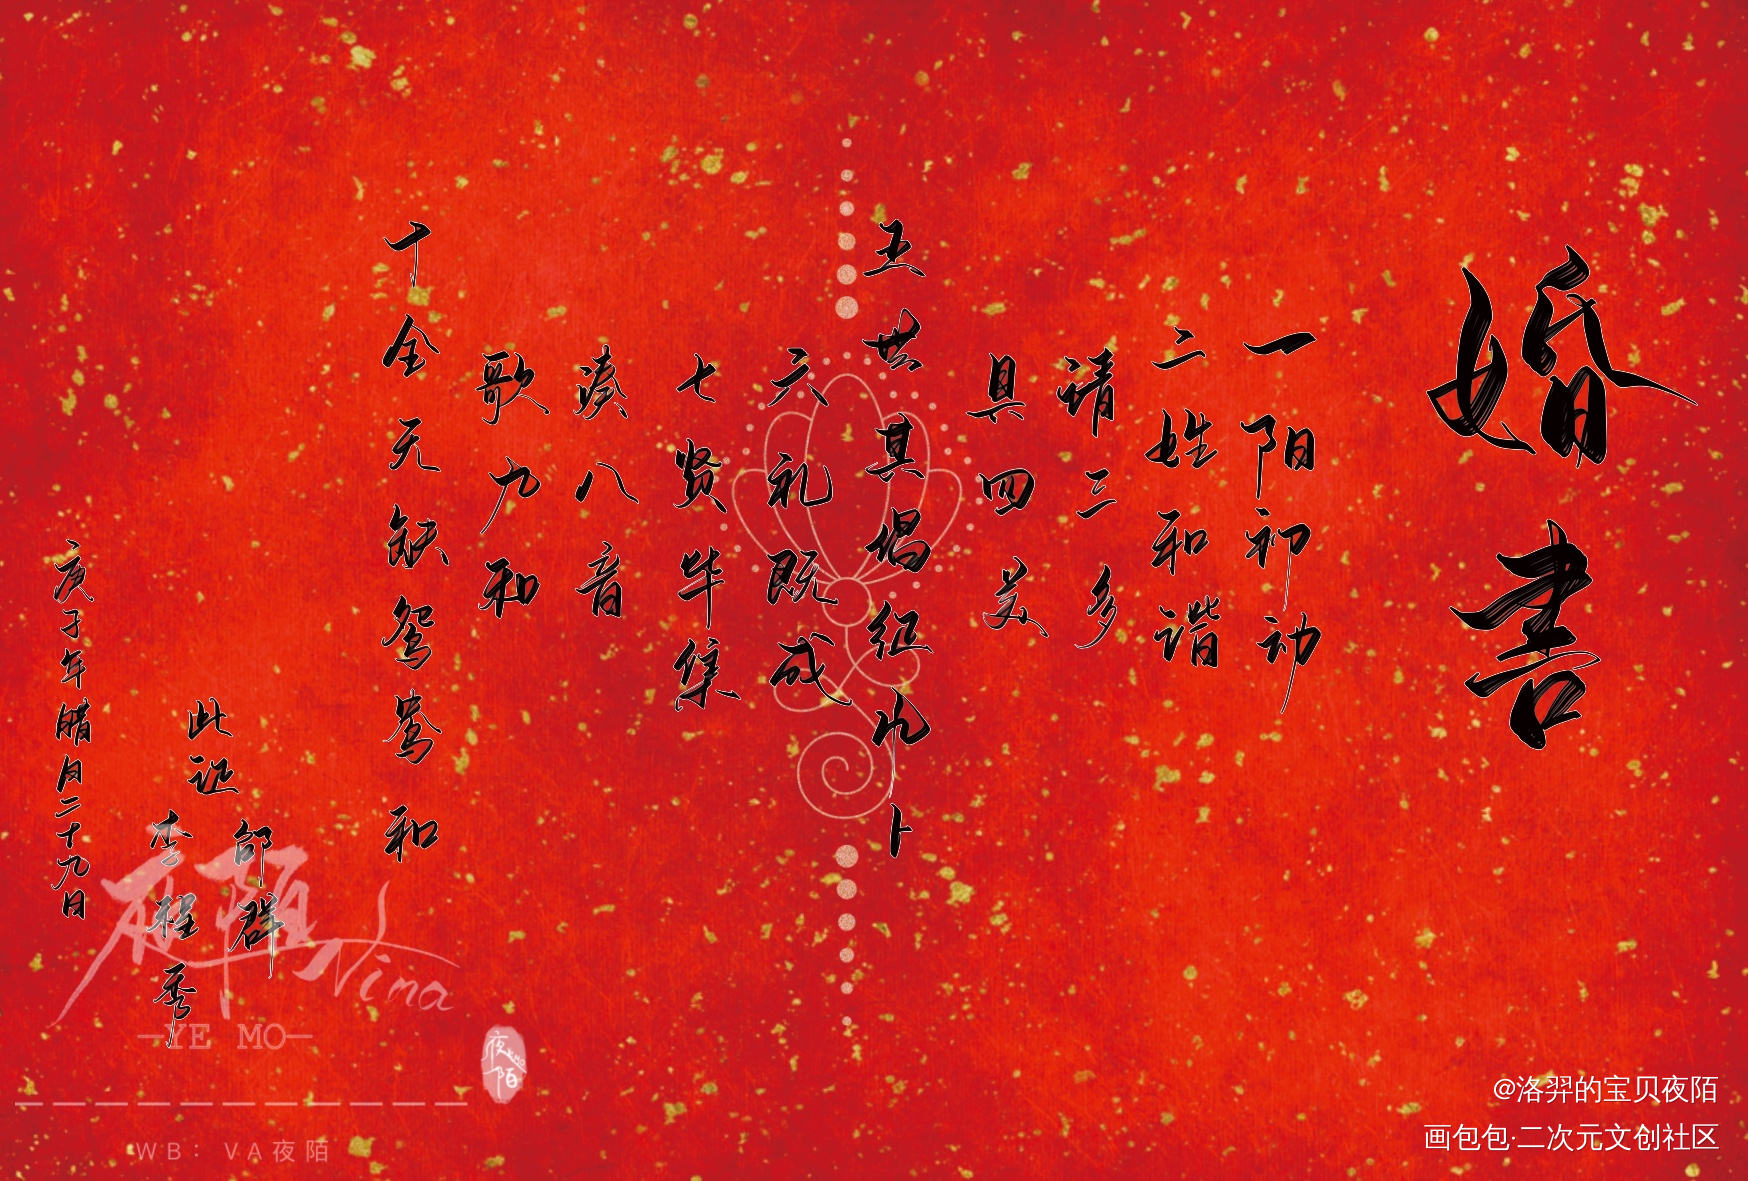 婚書
一阳初动
二姓和谐
请三多
具四美
五世其倡征凡卜
六礼既成
七贤毕集
凑八音
歌九和
十全无缺鸳鸯和
此证
邰群
李程秀
庚子年腊月二十九日
夜陌
Nina
YE MO
夜陌
WB：VA夜陌
@洛羿的宝贝夜陌
画包包·二次元文创社区